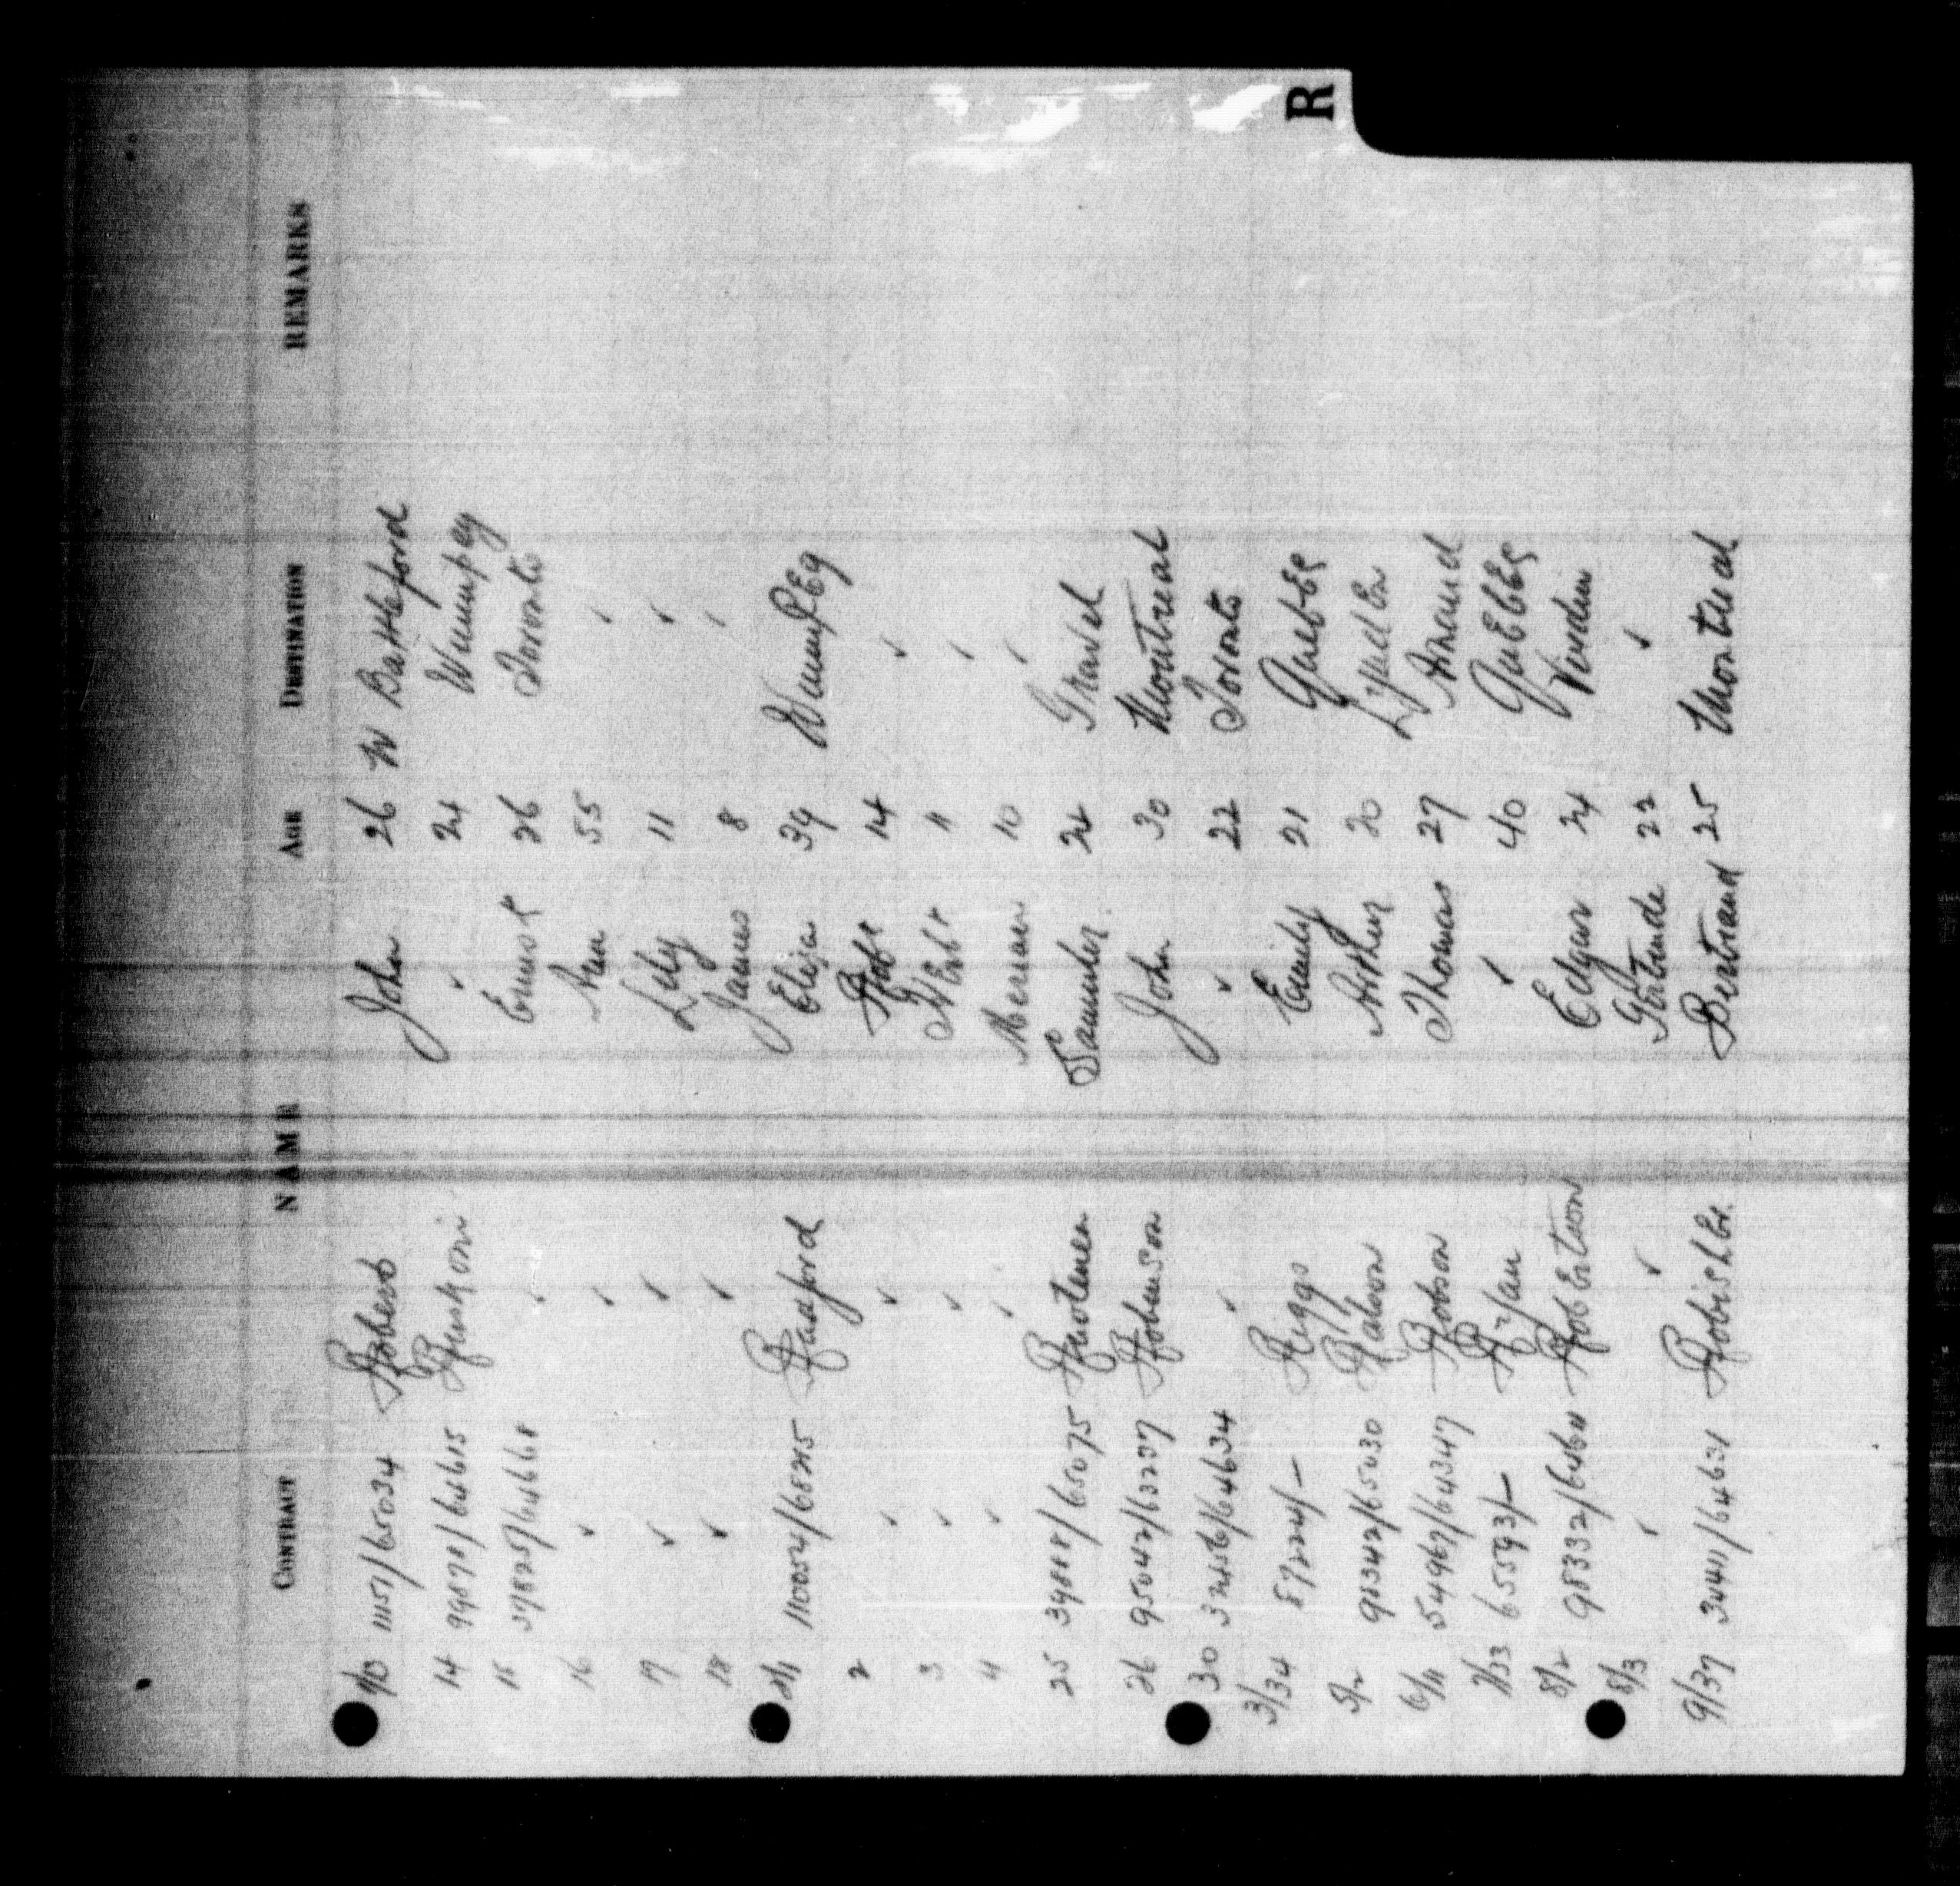 R
CONTRACT NAME AGE DESTINATION REMARKS
1/13 11151/65034 Roberts John 26 N Battleford
14 99878/64615 ✓ 24 Winnipeg
15 37825/64668 ✓ Ernest 26 Toronto
16 ✓ ✓ Ann 55 ✓
17 ✓ ✓ Lily 11 ✓
18 ✓ ✓ James 8 ✓
110054/68245 Radford Eliza 39 Winnipeg
2 ✓ ✓ Robt 14 ✓
3 ✓ ✓ Herbt 11 ✓
4 ✓ ✓ 10 ✓
25 39888/65075 24 Gravel
26 95042/63237 Robinson John 30 Montreal
30 32456/64634 ✓ ✓ 22 Toronto
3/34 87224/— Riggs Emily 21 Quebec
5/2 98342/65030 Arthur 20
6/11 54967/64347 Robson Thomas 27 Arnaud
7/33 65593/— Ryan ✓ 40 Quebec
8/2 98332/64611 Robertson Edgar 24 Verdun
8/3 ✓ ✓ Gertrude 22 ✓
9/37 34411/64631 Bertrand 25 Montreal